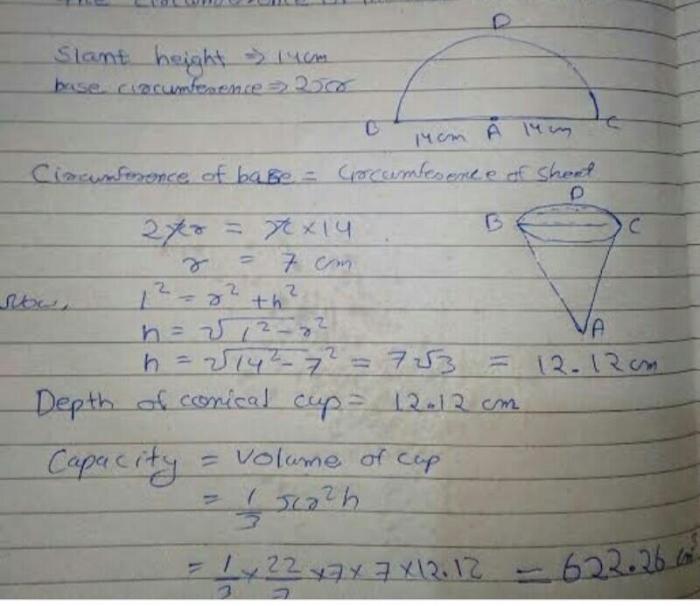 The circumference of
Slant height ⇒ 14cm
base circumference ⇒ 2πr
D
B 14cm A 14cm C
Circumference of base = Circumference of sheet
2πr = π×14
r = 7 cm
D
B C
A
Now, l² = r² + h²
h = √l² - r²
h = √14² - 7² = 7√3 = 12.12cm
Depth of conical cup = 12.12 cm
Capacity = Volume of cup
= 1/3 πr²h
= 1/3 × 22/7 × 7 × 7 × 12.12 = 622.26 cm³